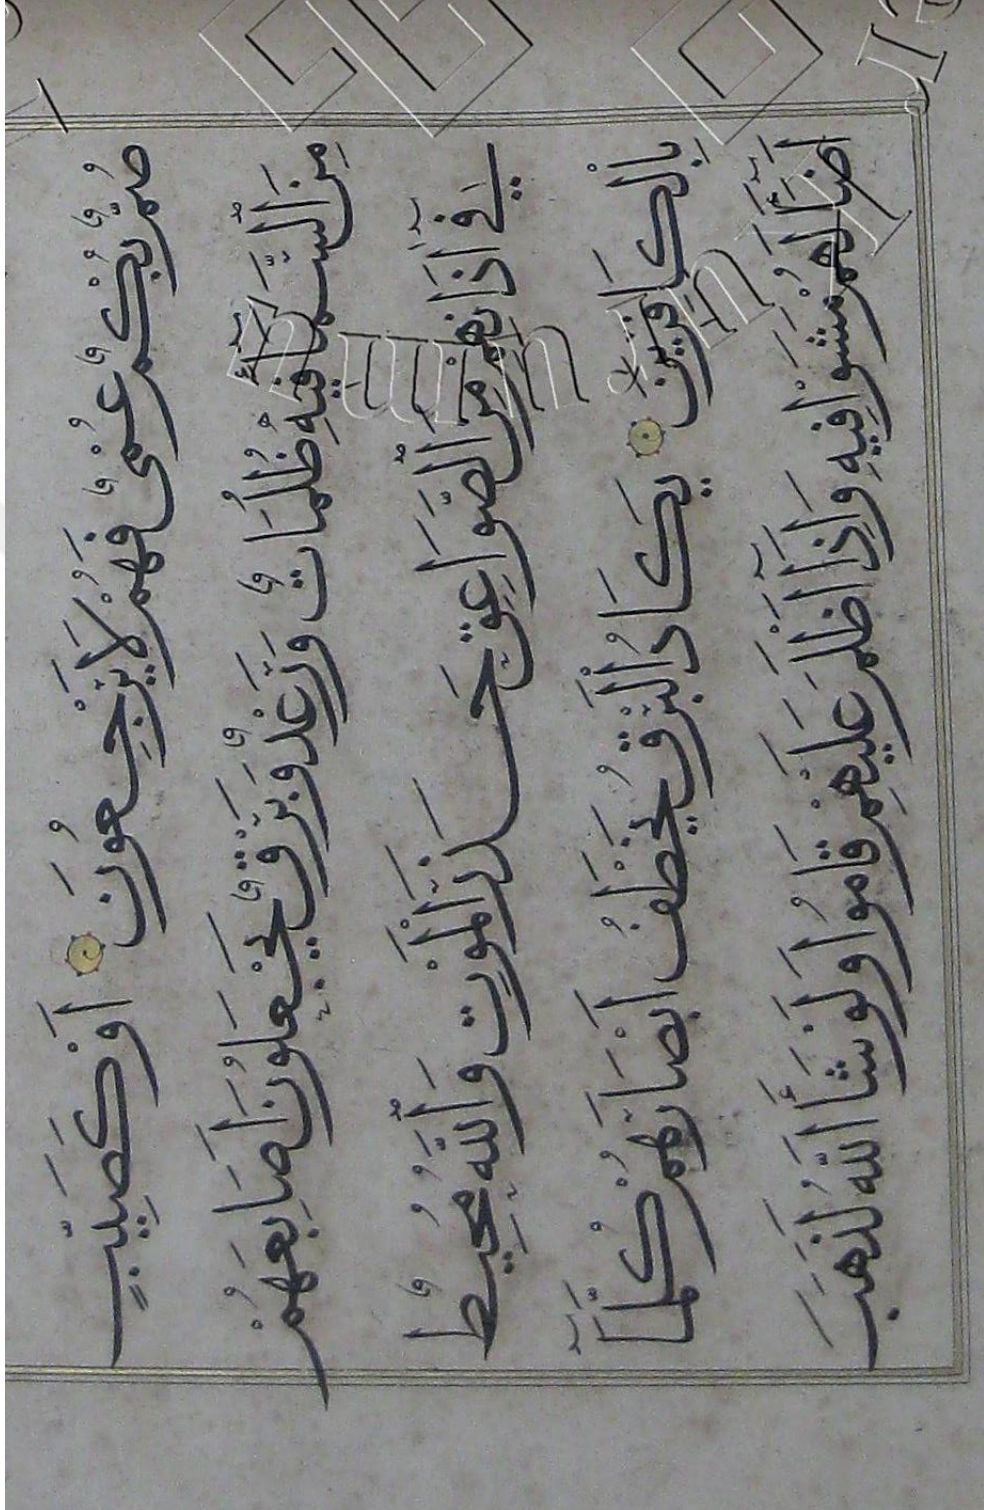 صُمٌّ بُكْمٌ عُمْىٌ فَهُمْ لَا يَرْجِعُونَ اَوْ كَصَيِّبٍ
مِنَ السَّمَآءِ فِيهِ ظُلُمَاتٌ وَرَعْدٌ وَبَرْقٌ يَجْعَلُونَ اَصَابِعَهُمْ
فِىٓ اٰذَانِهِمْ مِنَ الصَّوَاعِقِ حَذَرَ الْمَوْتِ وَاللّٰهُ مُحِيطٌ
بِالْكَافِرِينَ يَكَادُ الْبَرْقُ يَخْطَفُ اَبْصَارَهُمْ كُلَّمَآ
اَضَآءَ لَهُمْ مَشَوْا فِيهِ وَاِذَآ اَظْلَمَ عَلَيْهِمْ قَامُوا وَلَوْ شَآءَ اللّٰهُ لَذَهَبَ